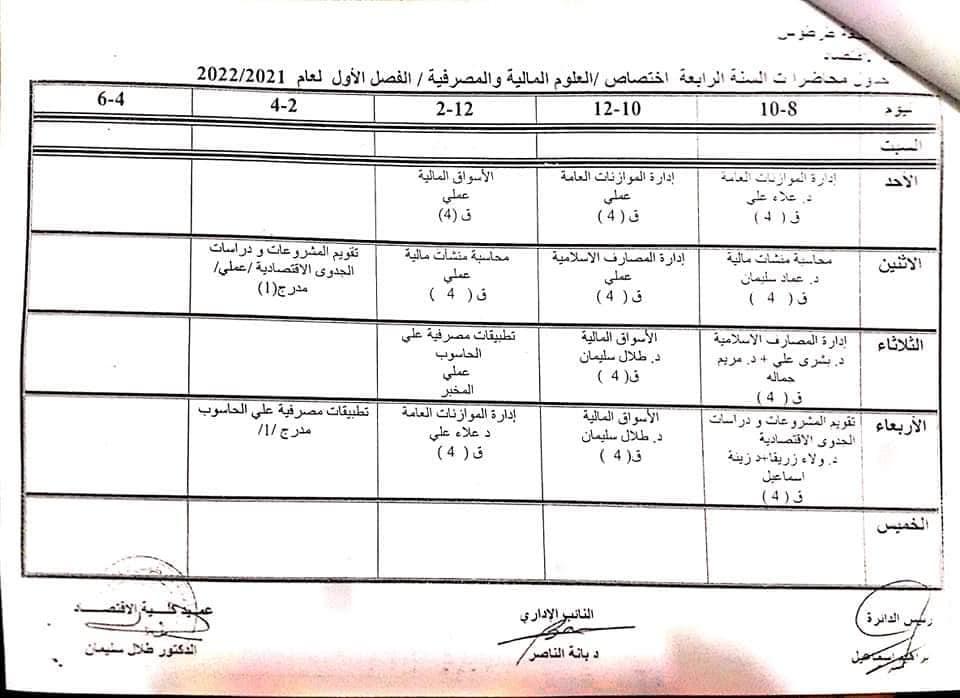 طرطوس
محاضرات السنة الرابعة اختصاص /العلوم المالية والمصرفية / الفصل الأول لعام 2022/2021
10-8
12-10
2-12
4-2
6-4
السبت
الأحد
إدارة الموازنات العامة
د. علاء علي
ق ( 4 )
إدارة الموازنات العامة
عملي
ق ( 4 )
الأسواق المالية
عملي
ق (4)
الاثنين
محاسبة منشات مالية
د. عماد سليمان
ق ( 4 )
إدارة المصارف الاسلامية
عملي
ق ( 4 )
محاسبة منشات مالية
عملي
ق ( 4 )
تقويم المشروعات و دراسات
الجدوى الاقتصادية /عملي/
مدرج(1)
الثلاثاء
إدارة المصارف الاسلامية
د. بشرى علي + د. مريم
حماله
ق ( 4 )
الأسواق المالية
د. طلال سليمان
ق( 4 )
تطبيقات مصرفية علي
الحاسوب
عملي
المخبر
الأربعاء
تقويم المشروعات و دراسات
الجدوى الاقتصادية
د. ولاء زريقا+د زينة
اسماعيل
ق ( 4 )
الأسواق المالية
د. طلال سليمان
ق( 4 )
إدارة الموازنات العامة
د علاء علي
ق ( 4 )
تطبيقات مصرفية علي الحاسوب
مدرج /1/
الخميس
رئيس الدائرة
اسماعيل
النائب الإداري
د بانة الناصر
عميد كلية الاقتصاد
الدكتور طلال سليمان